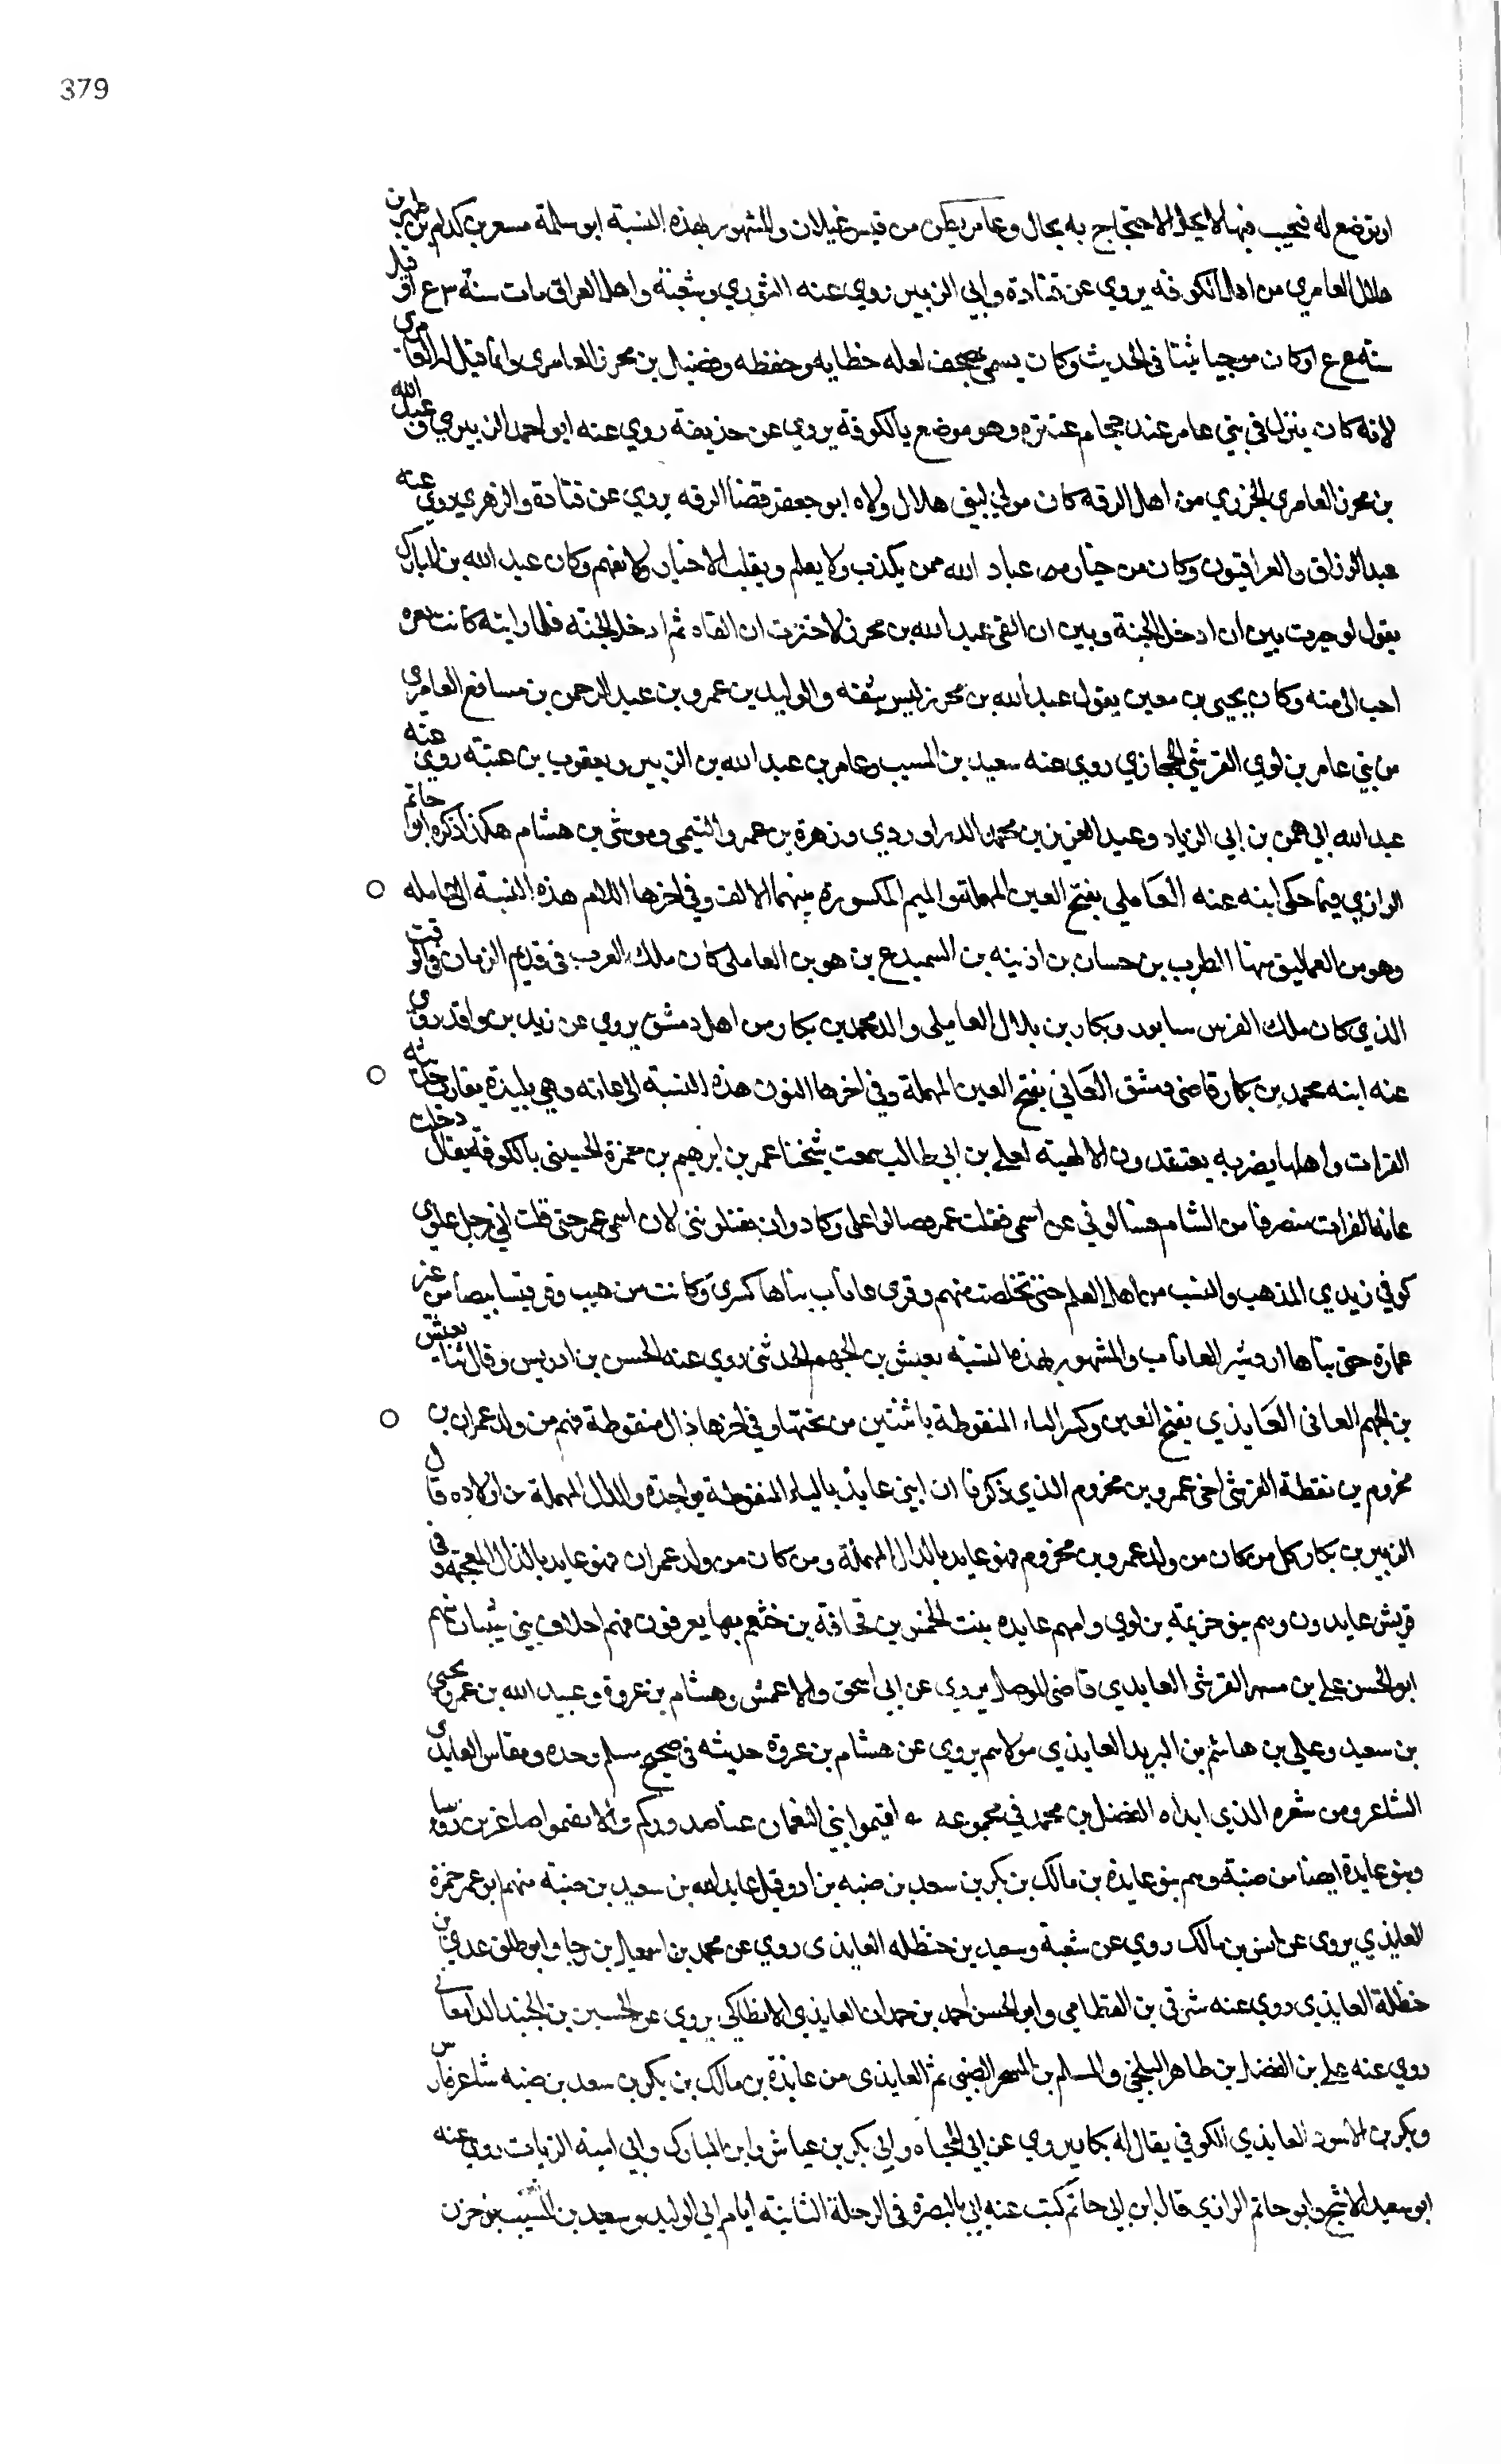 379
او توضع له فيجيب فيها لا يحل الاحتجاج به بحال وعامر بطن من قيس غيلان والمشهور بهذه النسبة ابو سلمة مسعر بن كدام بن ظهير بن
هلال العامري من اهل الكوفه يروي عن قتادة وابي الزبير روي عنه الثوري وشعبة واهل العراق مات سنة وقيل
سنة وكان مرجيا ثبتا في الحديث وكان يسمي المصحف لقله خطايه وحفظه وفضيل بن محرز العامرى وانما قيل له العامرى
لانه كان ينزل في بني عامر عند حجام عنتره وهو موضع بالكوفة يروي عن حذيفة روي عنه ابو احمد الزبيري وعبد الله
بن محرز العامرى الجزري من اهل الرقه كان مولي لبني هلال ولاه ابو جعفر قضا الرقه يروي عن قتادة والزهري روي عنه
عبد الرزاق والعراقيون وكان من خيار عباد الله ممن يكذب ولا يعلم ويقلب الاخبار ولا يفهم وكان عبد الله بن المبارك
يقول لو خيرت بين ان ادخل الجنة وبين ان القي عبد الله بن محرز لاخترت ان القاه ثم ادخل الجنة فلما رايته كانت بعره
احب الى منه وكان يحيى بن معين يقول عبد الله بن محرز ليس بثقه والوليد بن عمرو بن عبد الرحمن بن مسافع العامرى
من بني عامر بن لوي القرشي الحجازي روي عنه سعيد بن المسيب وعامر بن عبد الله بن الزبير ويعقوب بن عتبة روي عنه
عبد الله بن ابي الزناد وعبد العزيز بن محمد الدراوردي وزهرة بن عمرو التيمى وموسي بن هشام هكذا ذكره ابو حاتم
الرازي فيما حكى ابنه عنه العاملي بفتح العين المهملة والميم المكسورة بينهما الالف وفي اخرها اللام هذه النسبة الى عامله
وهو من العماليق منها الظرب بن حسان بن اذينه بن السميدع بن هوبن العاملى كان ملك العرب في قديم الزمان في الوقت
الذي كان ملك الفرس سابور وبكار بن بلال العاملى والد محمد بن بكار من اهل دمشق يروي عن زيد بن واقد روى
عنه ابنه محمد بن بكار قاضي دمشق العاني بفتح العين المهملة وفي اخرها النون هذه النسبة الى عانه وهي بليدة يقارب حديثة
الفرات واهلها نصريه يعتقدون الالهية لعلي بن ابي طالب سمعت شيخنا عمر بن ابرهيم بن حمزة الحسيني بالكوفة يقال دخلت
عانه الفرات منصرفا من الشام فسالوني عن اسمى فقلت عمر فصالوا على وكادوا ان يقتلوننى لان اسمى عمر حتى قلت اني رجل علوي
كوفي زيدي المذهب والنسب من اهل العلم حتى تخلصت منهم وقرى عانات بناها كسرى وكانت من هيت وقرقيسا بيضا من غير
عمارة حتى بناها اردشير العانات والمشهور بهذه النسبة يعيش بن الجهم الحدثى روي عنه الحسن بن ادريس وقال ثنا يعيش
بن الجهم العانى العايذي بفتح العين وكسر الياء المنقوطة باثنتين من تحتها وفي اخرها ذال منقوطة فهم من ولد عمران بن
مخزوم بن نقطة القرشي اخي عمرو بن مخزوم الذي ذكرنا ان ابني عابد بالباء المنقوطة بواحدة والدال المهملة من اولاده قال
الزبير بن بكار كل من كان من ولد عمرو بن مخزوم فهو عابد بالدال المهملة ومن كان من ولد عمران فهو عايذ بالذال المعجمه وفي
قريش عايدون وهم بنو خزيمة بن لوي وامهم عايده بنت الخمس بن قحافة بن خثعم بها يعرفون فهم احلاف بني شيبان منهم
ابو الحسن علي بن مسهر القرشي العايدي قاضي الموصل يروي عن ابي اسحق والاعمش وهشام بن عروة وعبيد الله بن عمرو ويحيى
بن سعيد وعلي بن هاشم بن البريد العايذي مولاهم يروي عن هشام بن عروة حديثه في صحيح مسلم وحده ومقاس العايذي
الشاعر ومن شعره الذي الفضل بن محمد في مجموعه اقيموا بني النعمان عنا صدوركم والا تقيموا صاغرين روسا
وبنو عايدة ايضا من ضبة وهم بنو عايدة بن مالك بن بكر بن سعد بن ضبه بن اد وقيل عايد الله بن سعيد بن ضبة منهم ابو عمر حمزة
العايذي يروى عن انس بن مالك روي عن شعبة وسعيد بن حنظله العايذى روي عن محمد بن اسمعيل بن رجا وابو طلق عدي بن
حنظلة العايذى روي عنه شرقي بن القطامي وابو الحسن احمد بن حمدان العايذي الانطاكي يروي عن الحسين بن الجنيد الدامغاني
روي عنه علي بن الفضل بن طاهر البلخي والمسلم بن المسهر الضبى ثم العايذى من عايذة بن مالك بن بكر بن سعد بن ضبه شاعر فارس
وبكر بن الاسود العايذي الكوفي يقال له بكار يروي عن ابي المحياه وابي بكر بن عياش وابن المبارك وابي امية الزيات روي عنه
ابو سعيد الاشج وابو حاتم الرازي قال ابن ابي حاتم كتب عنه ابي بالبصرة في الرحلة الثانية ايام ابي الوليد وسعيد بن المسيب بن حزن